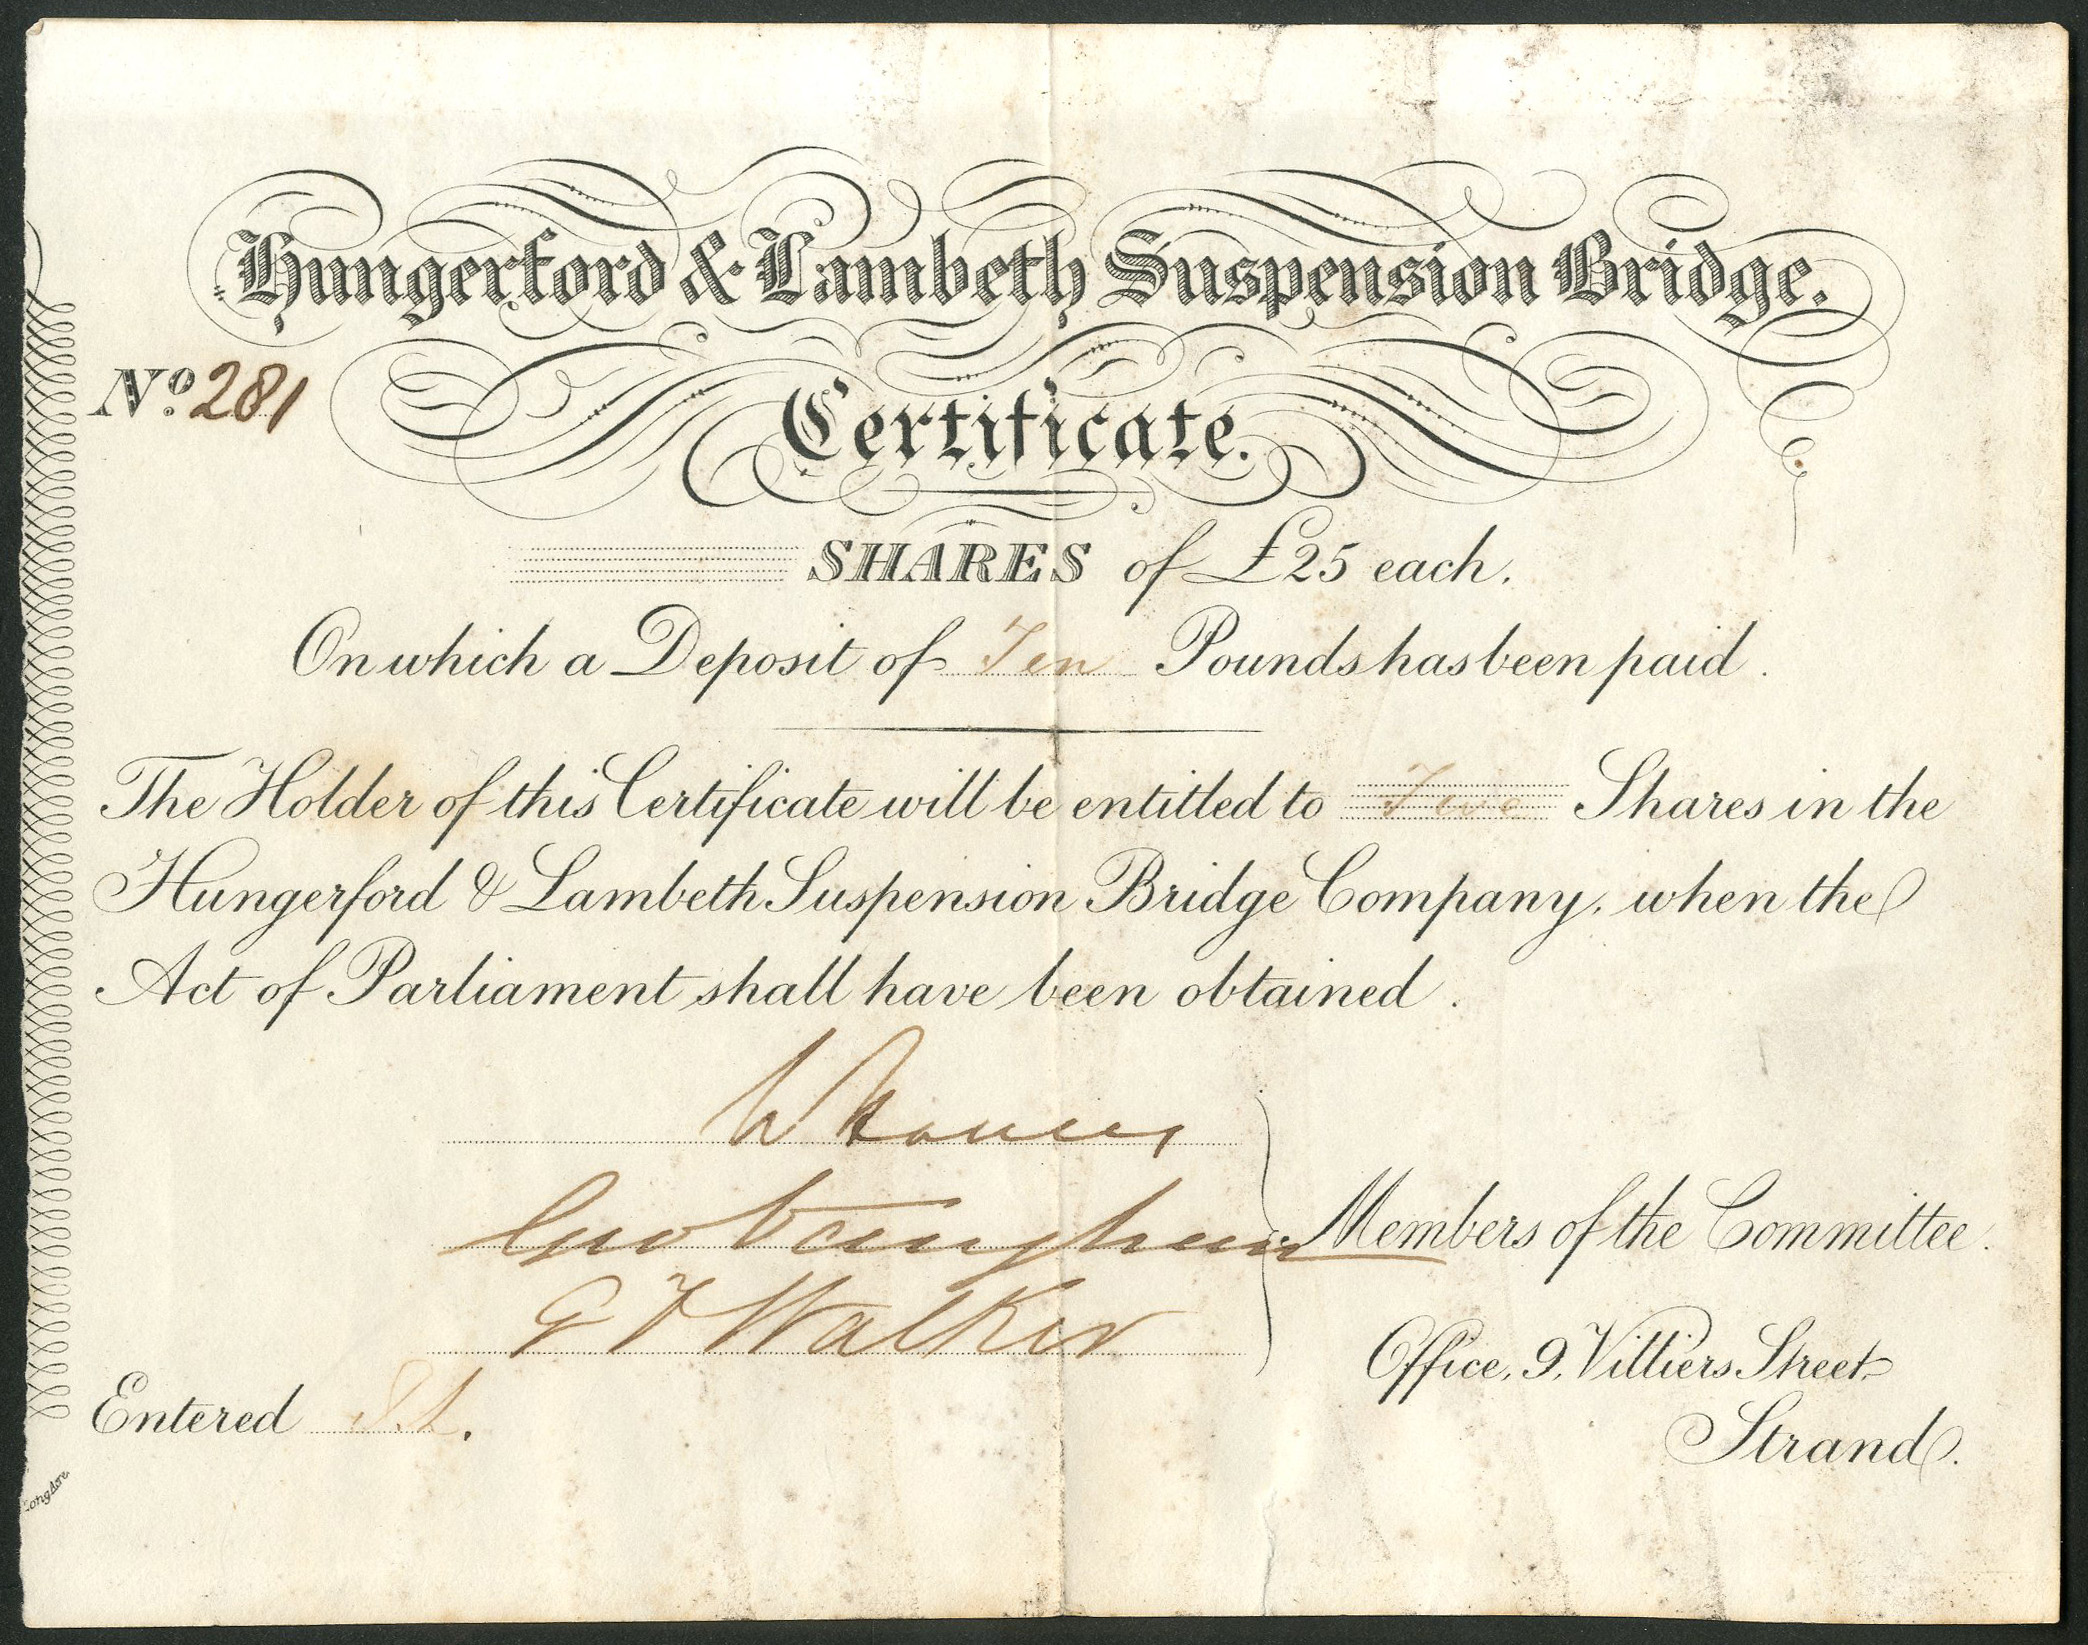 Hungerford & Lambeth Suspension Bridge.
No. 281
Certificate.
SHARES of £25 each.
On which a Deposit of Ten Pounds has been paid.
The Holder of this Certificate will be entitled to Two Shares in the
Hungerford & Lambeth Suspension Bridge Company, when the
Act of Parliament shall have been obtained.
W
Members of the Committee.
G F Walker
Office, 9, Villiers Street
Entered
Strand.